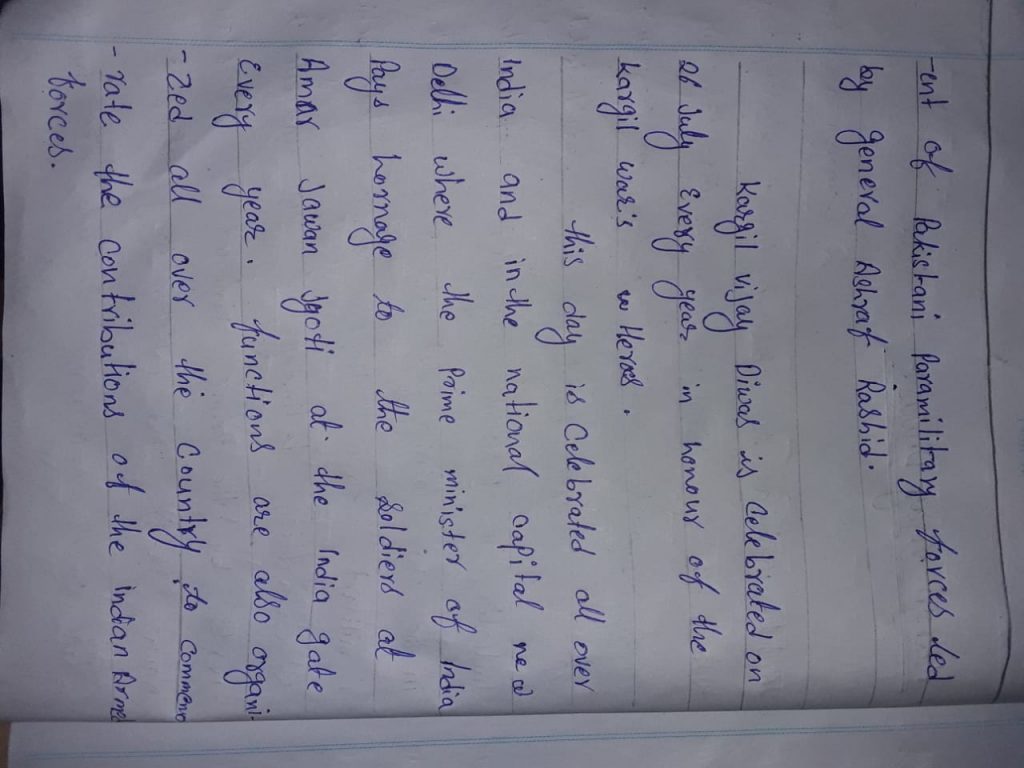 -ent of Pakistani Paramilitary forces led
by general Ashraf Rashid.
Kargil vijay Diwas is Celebrated on
26 July Every year in honour of the
Kargil war's Heros.
this day is Celebrated all over
India and in the national capital new
Delhi where the Prime minister of India
Pays homage to the Soldiers at
Amar Jawan Jyoti at the India gate
Every year. functions are also organi-
-zed all over the Country to commemo
-rate the contributions of the indian Armed
forces.